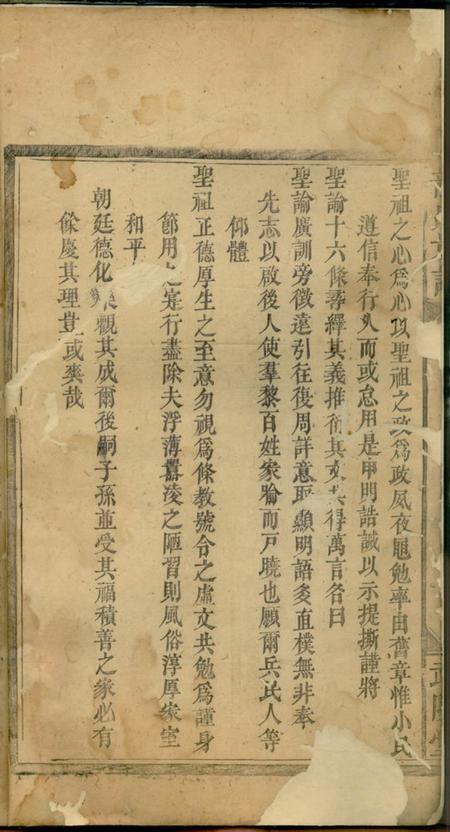 聖祖之心爲心以聖祖之政爲政夙夜黽勉率由舊章惟小民
遵信奉行久而或怠用是申明誥誡以示提撕謹將
聖諭十六條尋繹其義推衍其文共得萬言名曰
聖諭廣訓旁徵遠引往復周詳意取顯明語多直樸無非奉
先志以啟後人使羣黎百姓家喻而戸曉也願爾兵民人等
仰體
聖祖正德厚生之至意勿視爲條教號令之虛文共勉爲謹身
節用之 行盡除夫浮薄囂凌之陋習則風俗淳厚家室
和平
朝廷德化 觀其成爾後嗣子孫並受其福積善之家必有
餘慶其理豈或爽哉